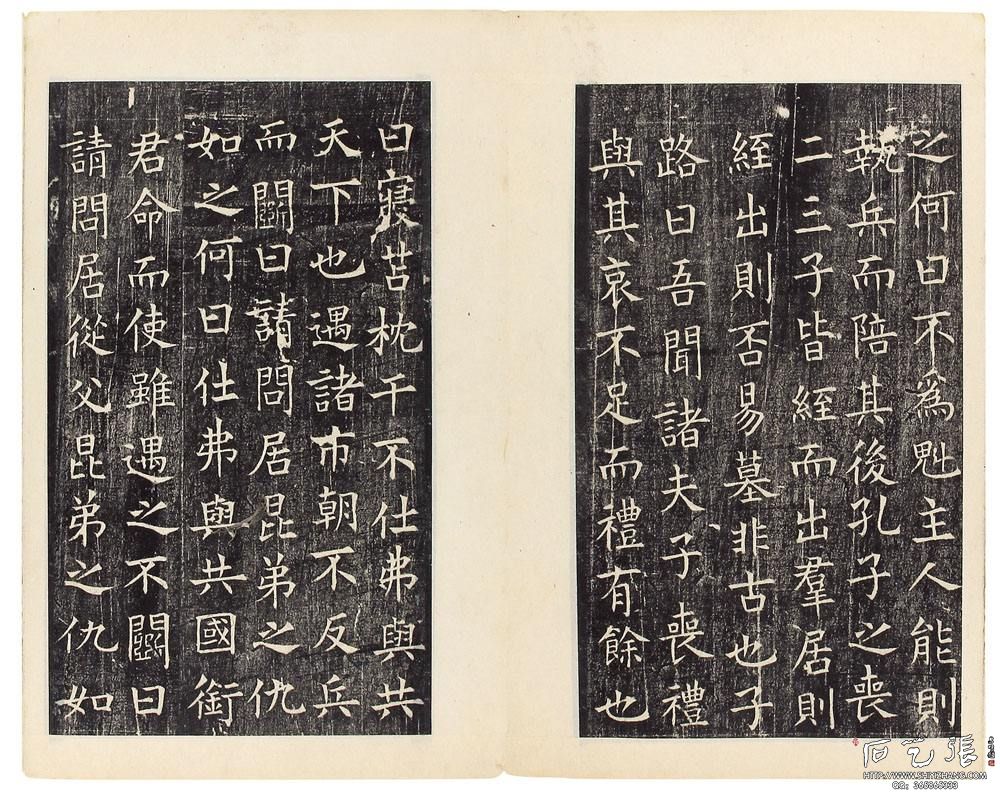 曰寢苫枕干不仕弗與共
天下也遇諸市朝不反兵
而鬭曰請問居昆弟之仇
如之何曰仕弗與共國銜
君命而使雖遇之不鬭曰
請問居從父昆弟之仇如
之何曰不爲魁主人能則
執兵而陪其後孔子之喪
二三子皆絰而出羣居則
絰出則否易墓非古也子
路曰吾聞諸夫子喪禮
與其哀不足而禮有餘也
石艺張
HTTP://WWW.SHIYIZHANG.COM
QQ: 365865333